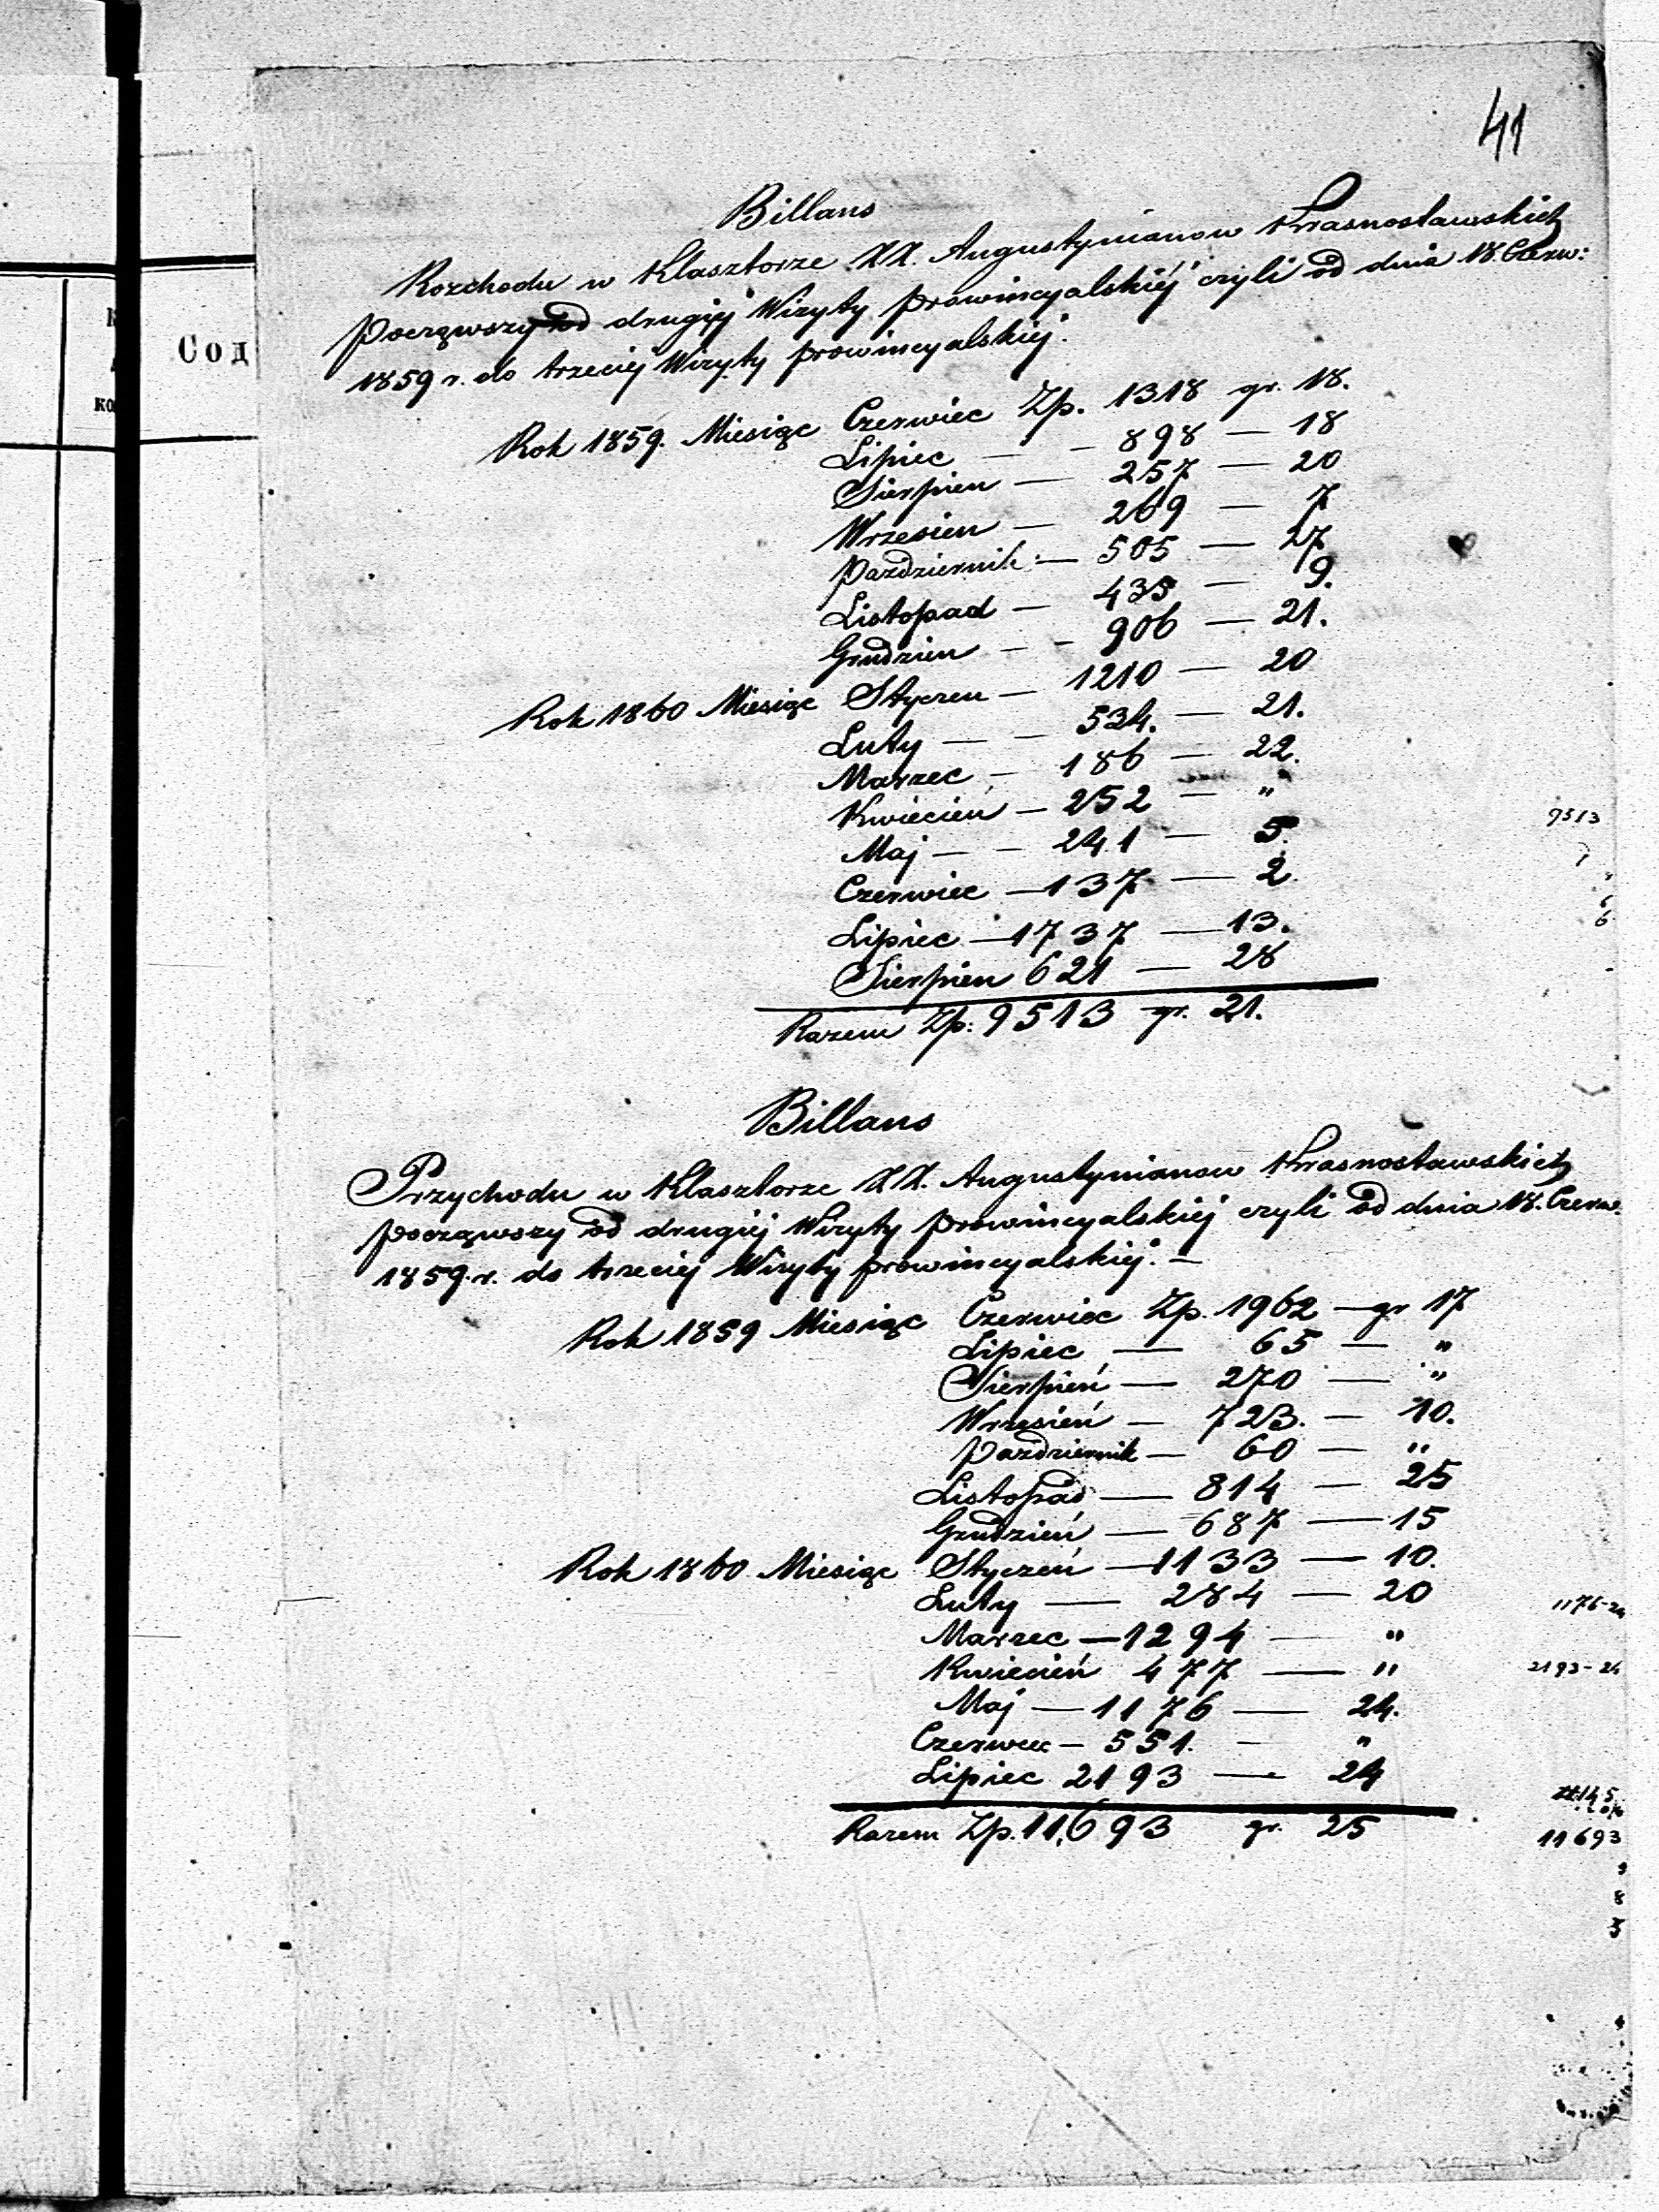 41
Сод
ко
Billans
Rozchodu w Klasztorze XX. Augustynianow Krasnostawskich
począwszy od drugiej Wizyty prowincyalskiéj czyli od dnia 18. Czerw:
1859 r. do trzeciej Wizyty prowincyalskiej.
Rok 1859. Miesiąc Czerwiec Zp. 1318 gr. 18.
Lipiec — - 898 — 18
Sierpien — 257 — 20
Wrzesien — 269 — 7
Pazdziernik — 505 — 27
Listopad — 435 — 9.
Grudzien — - 906 — 21.
Rok 1860 Miesiąc Styczen — 1210 — 20
Luty — - 534. — 21.
Marzec — 186 — 22.
Kwiecień — 252 — "
Maj — - 241 — 5.
Czerwiec — 137 — 2.
Lipiec — 1737 — 13.
Sierpien 621 — 28
Razem Zp: 9513 gr. 21.
9513
Billans
Przychodu w Klasztorze XX. Augustynianow Krasnostawskich
począwszy od drugiej Wizyty prowincyalskiej czyli od dnia 18. Czerw.
1859. r. do trzeciej Wizyty prowincyalskiej. —
Rok 1859 Miesiąc Czerwiec Zp. 1962 — gr 17
Lipiec — 65 — "
Sierpień — 270 — "
Wrzesień — 723. — 10.
Pazdziernik — 60 — "
Listopad — 814 — 25
Grudzień — 687 — 15
Rok 1860 Miesiąc Styczeń — 1133 — 10.
Luty — 284 — 20
Marzec — 1294 — "
Kwiecień 477 — "
Maj — 1176 — 24.
Czerwiec — 551. — "
Lipiec 2193 — 24
Razem Zp. 11,693 gr. 25
1176-24
2193-24
11693